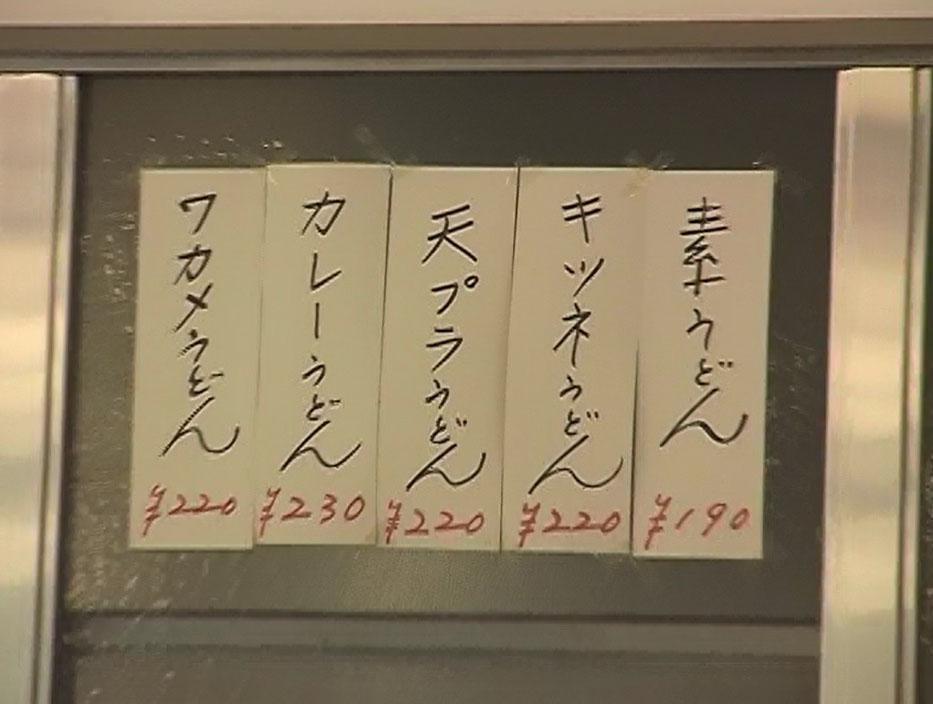 素うどん
¥190
キツネうどん
¥220
天プラうどん
¥220
カレーうどん
¥230
ワカメうどん
¥220